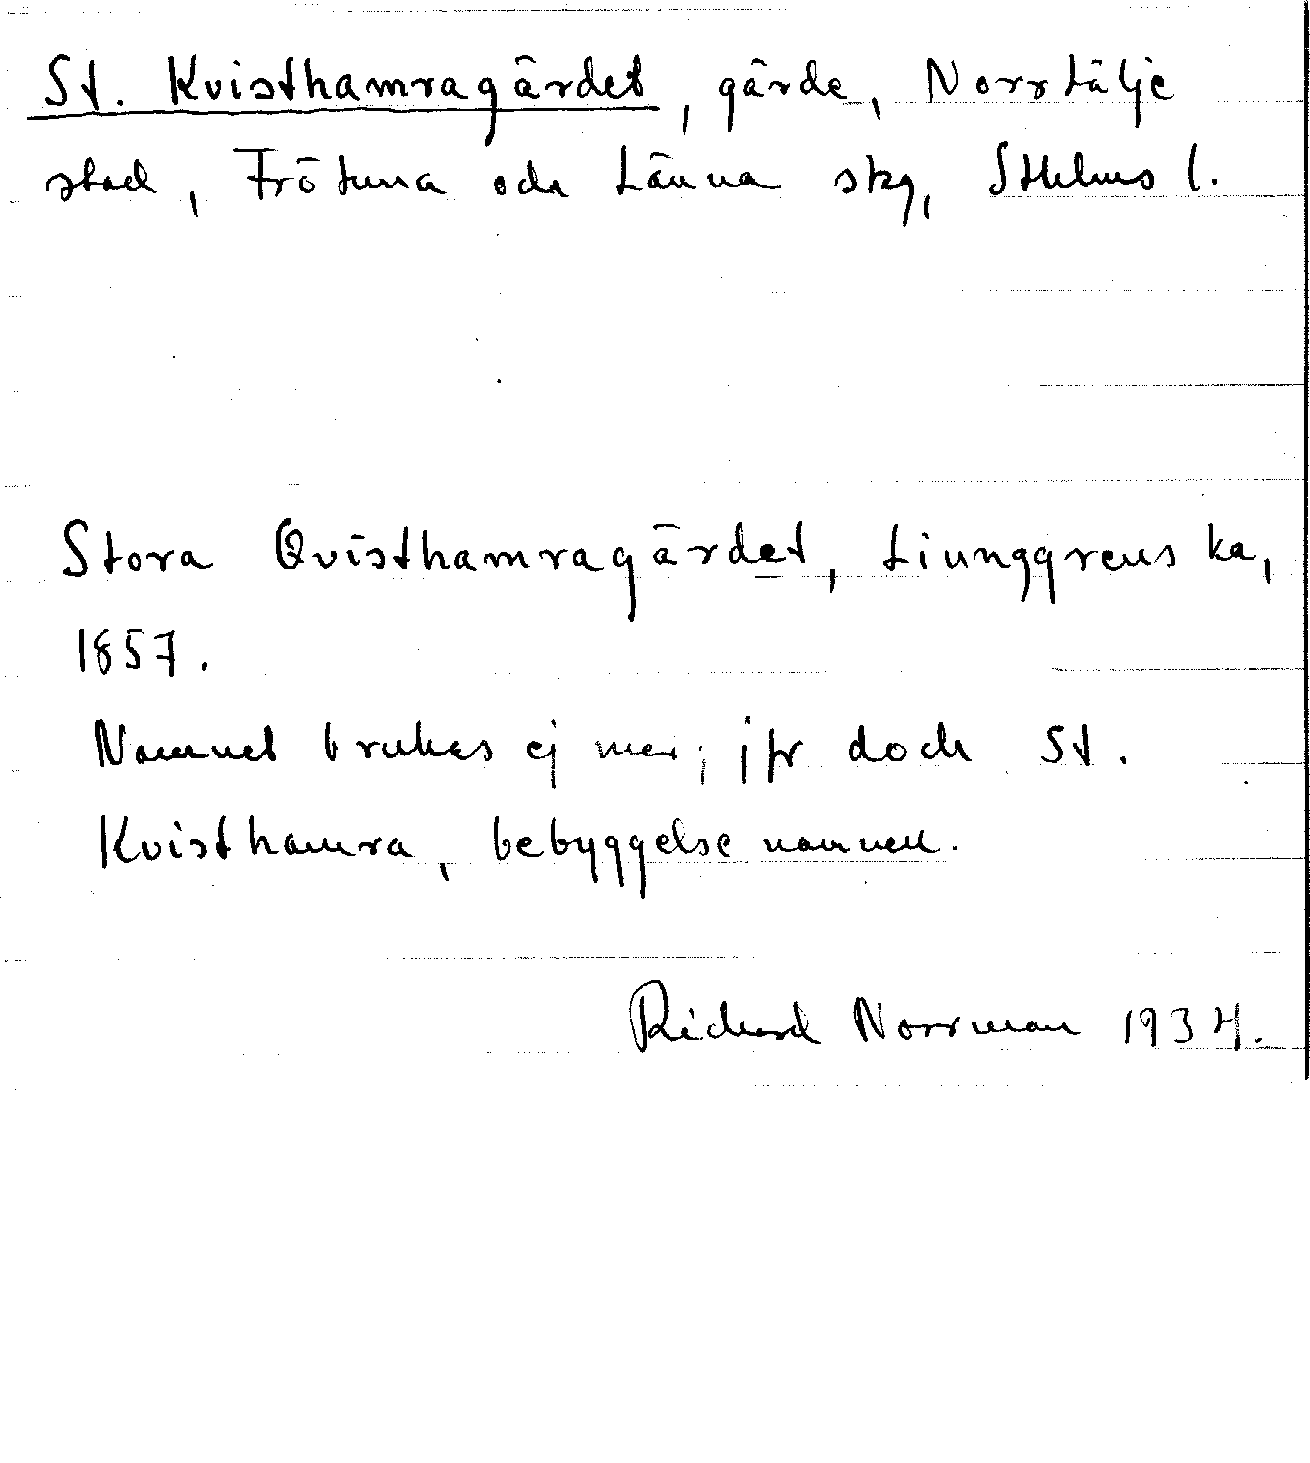 St. Kvisthamragärdet, gärde, Norrtälje
stad, Frötuna och Länna skg, Sthlms l.
Stora Qvisthamragärdet, Liunggrens ka,
1857.
Namnet brukas ej mer; jfr doch St.
Kvisthamra, bebyggelsenamnen.
Richard Norrman 1934.